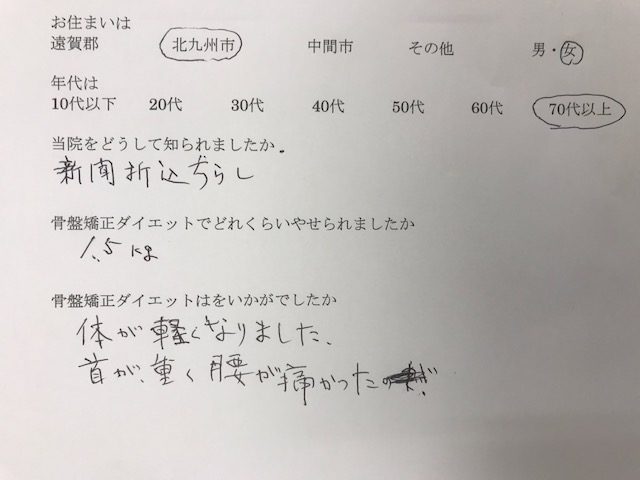 お住まいは
遠賀郡 北九州市 中間市 その他 男・女
年代は
10代以下 20代 30代 40代 50代 60代 70代以上
当院をどうして知られましたか。
新聞折込ちらし
骨盤矯正ダイエットでどれくらいやせられましたか
1.5 kg
骨盤矯正ダイエットはをいかがでしたか
体が軽くなりました、
首が、重く腰が痛かったの